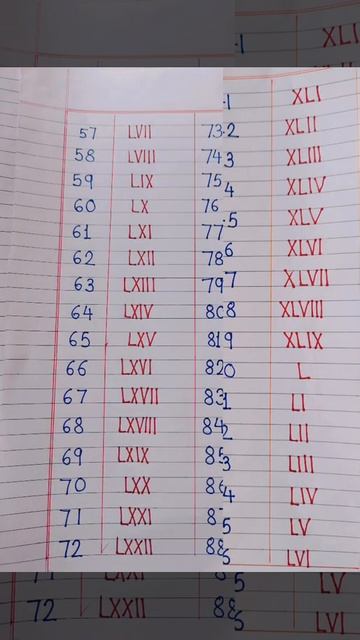 XLI
XLI
57 LVII 73 2 XLII
58 LVIII 74 3 XLIII
59 LIX 75 4 XLIV
60 LX 76
61 LXI 77 5 XLV
62 LXII 78 6 XLVI
63 LXIII 79 7 XLVII
64 LXIV 8 8 XLVIII
65 LXV 81 9 XLIX
66 LXVI 82 0 L
67 LXVII 83 1 LI
68 LXVIII 84 2 LII
69 LXIX 3 LIII
70 LXX 4 LIV
71 LXXI 5 LV
72 LXXII 5 LVI
LV
72 LXXII LVI